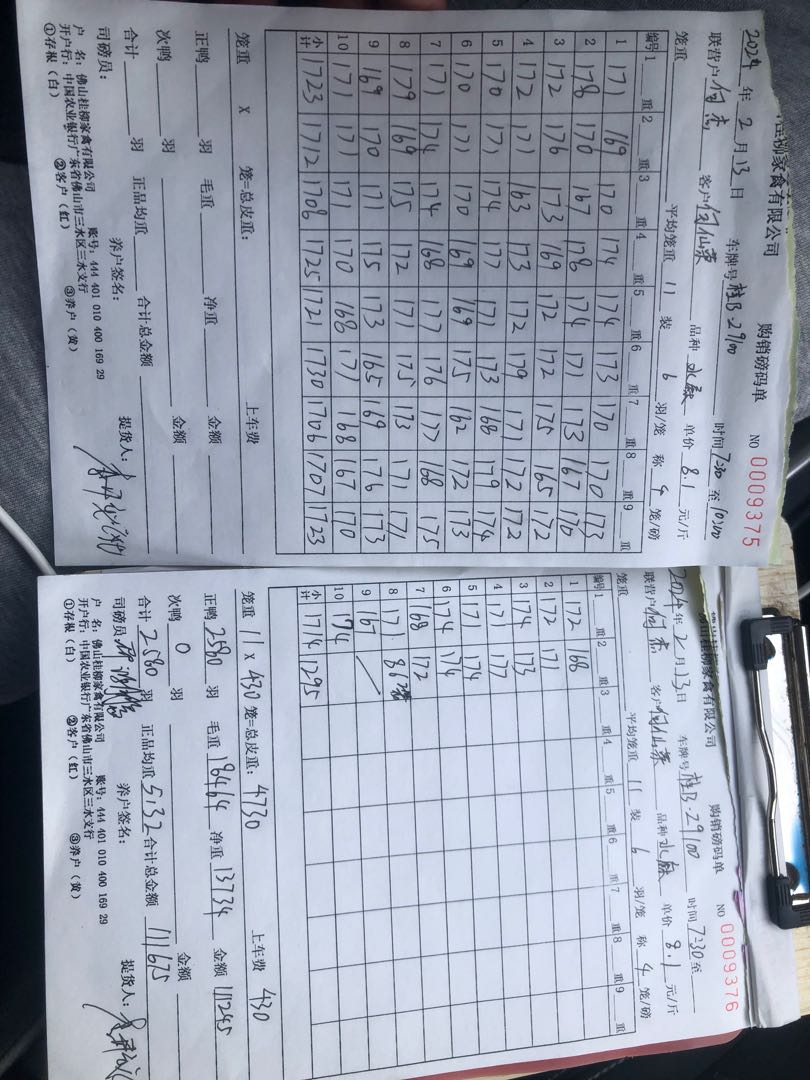 桂柳家禽有限公司 购销磅码单 NO 0009375
2024年2月13日 时间7:30至10:00
联营户 何杰 客户何仙荣 车牌号桂B·29100 品种 水鸭 单价 8.1 元/斤
笼重 平均笼重 11 装 6 羽/笼 称 4 笼/磅
编号 1 重 2 重 3 重 4 重 5 重 6 重 7 重 8 重 9 重
1 171 169 170 174 174 173 170 170 173
2 178 170 167 178 174 171 173 167 170
3 172 176 173 169 172 172 175 165 172
4 172 171 163 173 172 179 171 172 172
5 170 171 174 177 171 173 168 179 174
6 170 171 170 169 169 175 162 172 173
7 171 174 174 168 177 176 177 168 175
8 179 169 175 172 171 175 173 171 171
9 169 170 171 175 173 165 169 176 173
10 171 171 171 170 168 171 168 167 170
小计 1723 1712 1708 1725 1721 1730 1706 1707 1723
笼重 x 笼=总皮重: 上车费
正鸭 羽 毛重 净重 金额
次鸭 羽 金额
合计 羽 正品均重 合计总金额
司磅员: 养户签名: 提货人:
户 名:佛山桂柳家禽有限公司 账号:444 401 010 400 169 29
开户行:中国农业银行广东省佛山市三水区三水支行
①存根(白) ②客户(红) ③养户(黄)
佛山桂柳家禽有限公司 购销磅码单 NO 0009376
2024年2月13日 时间7:30至
联营户何杰 客户何仙荣 车牌号桂B·29100 品种水鸭 单价 8.1 元/斤
笼重 平均笼重 11 装 6 羽/笼 称 4 笼/磅
编号 1 重 2 重 3 重 4 重 5 重 6 重 7 重 8 重 9 重
1 172 168
2 172 171
3 174 173
4 171 177
5 171 174
6 174 174
7 168 172
8 171 86
9 167
10 174
小计 1714 1295
笼重 11 x 430 笼=总皮重:4730 上车费 430
正鸭 2580 羽 毛重 18464 净重 13734 金额 111245
次鸭 0 羽 金额
合计 2580 羽 正品均重 5.32 合计总金额 111675
司磅员: 养户签名: 提货人:
户 名:佛山桂柳家禽有限公司 账号:444 401 010 400 169 29
开户行:中国农业银行广东省佛山市三水区三水支行
①存根(白) ②客户(红) ③养户(黄)